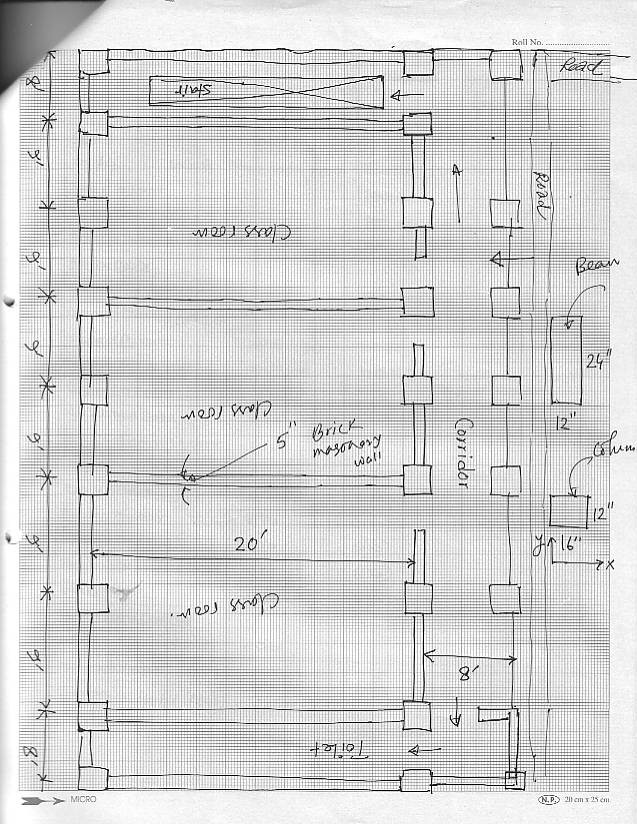 Roll No. ..........................
Road
8'
Stair
9'
Road
Class room
9'
Beam
9'
24"
Class room
12"
5" Brick
masonary
wall
Corridor
9'
Column
12"
16"
y
x
20'
9'
Class room.
9'
8'
Toilet
8'
MICRO
N.P. 20 cm x 25 cm